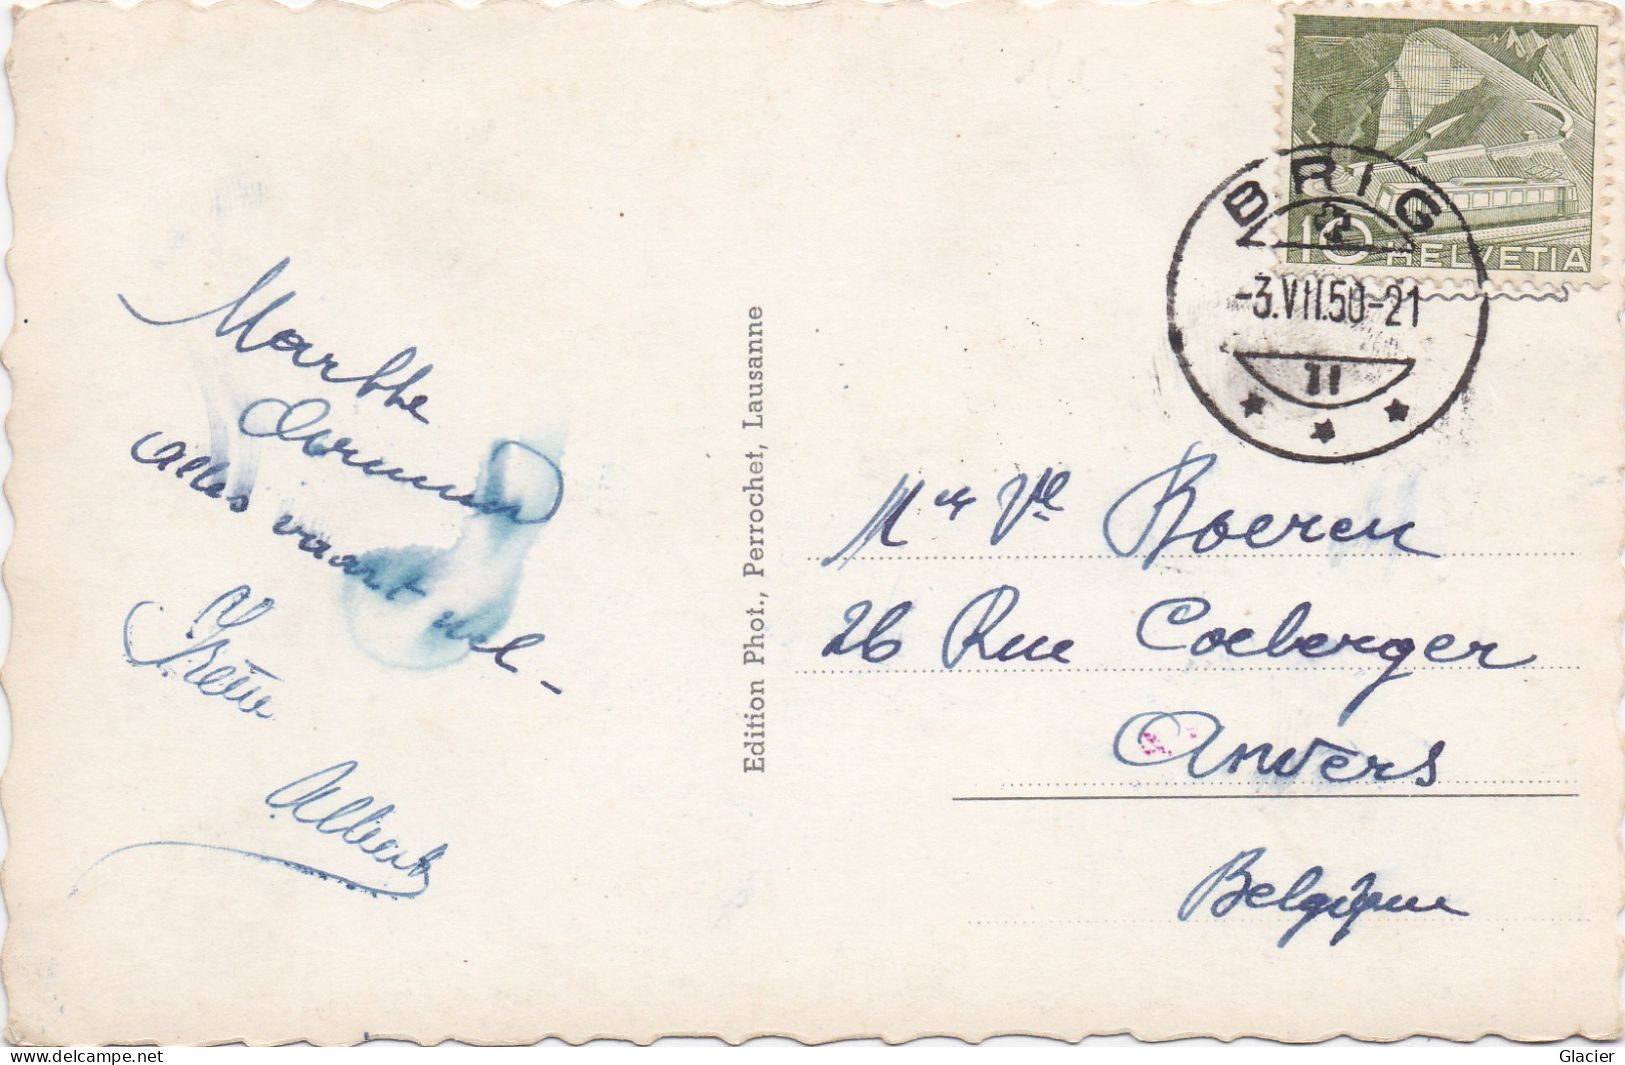 Marthe
Alles vaart wel -
Albert
Edition Phot., Perrochet, Lausanne
10 HELVETIA
BRIG
-3.VII.50-21
Vve Boeren
26 Rue Coeberger
Anvers
Belgique
www.delcampe.net
Glacier